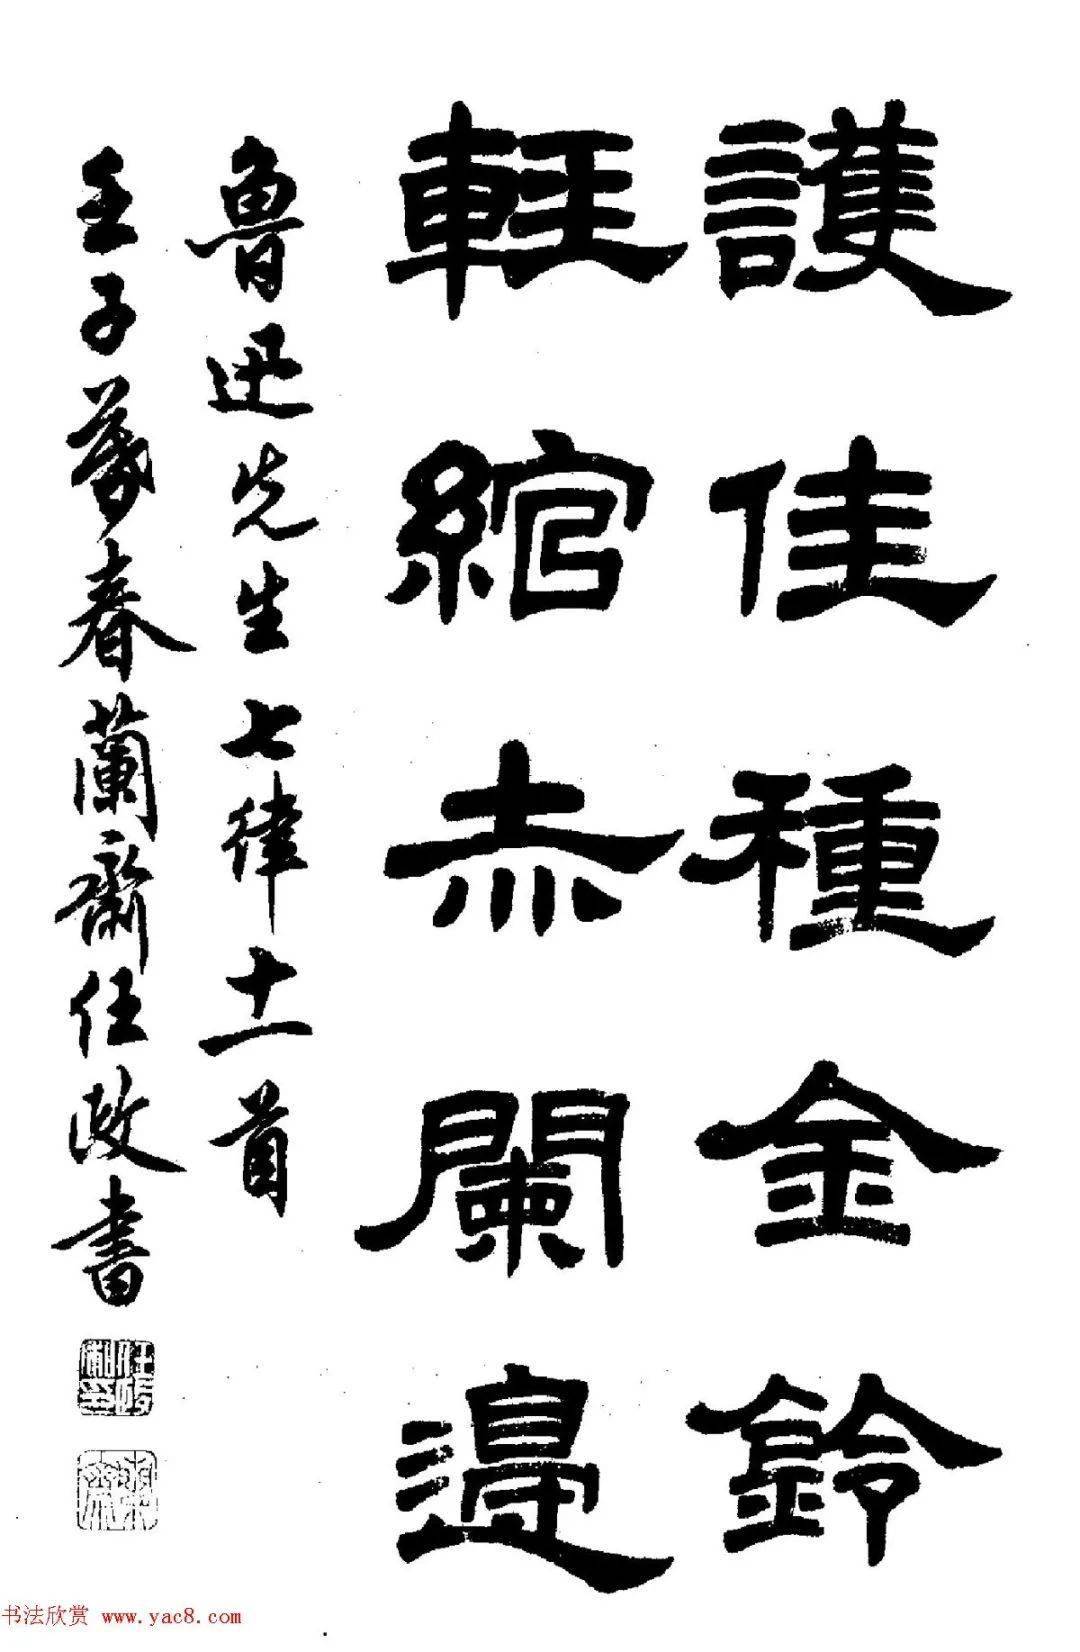 護佳種金鈴
輕綰赤闌邊
魯迅先生七律十一首
壬子莫春蘭齋任政書
书法欣赏 www.yac8.com